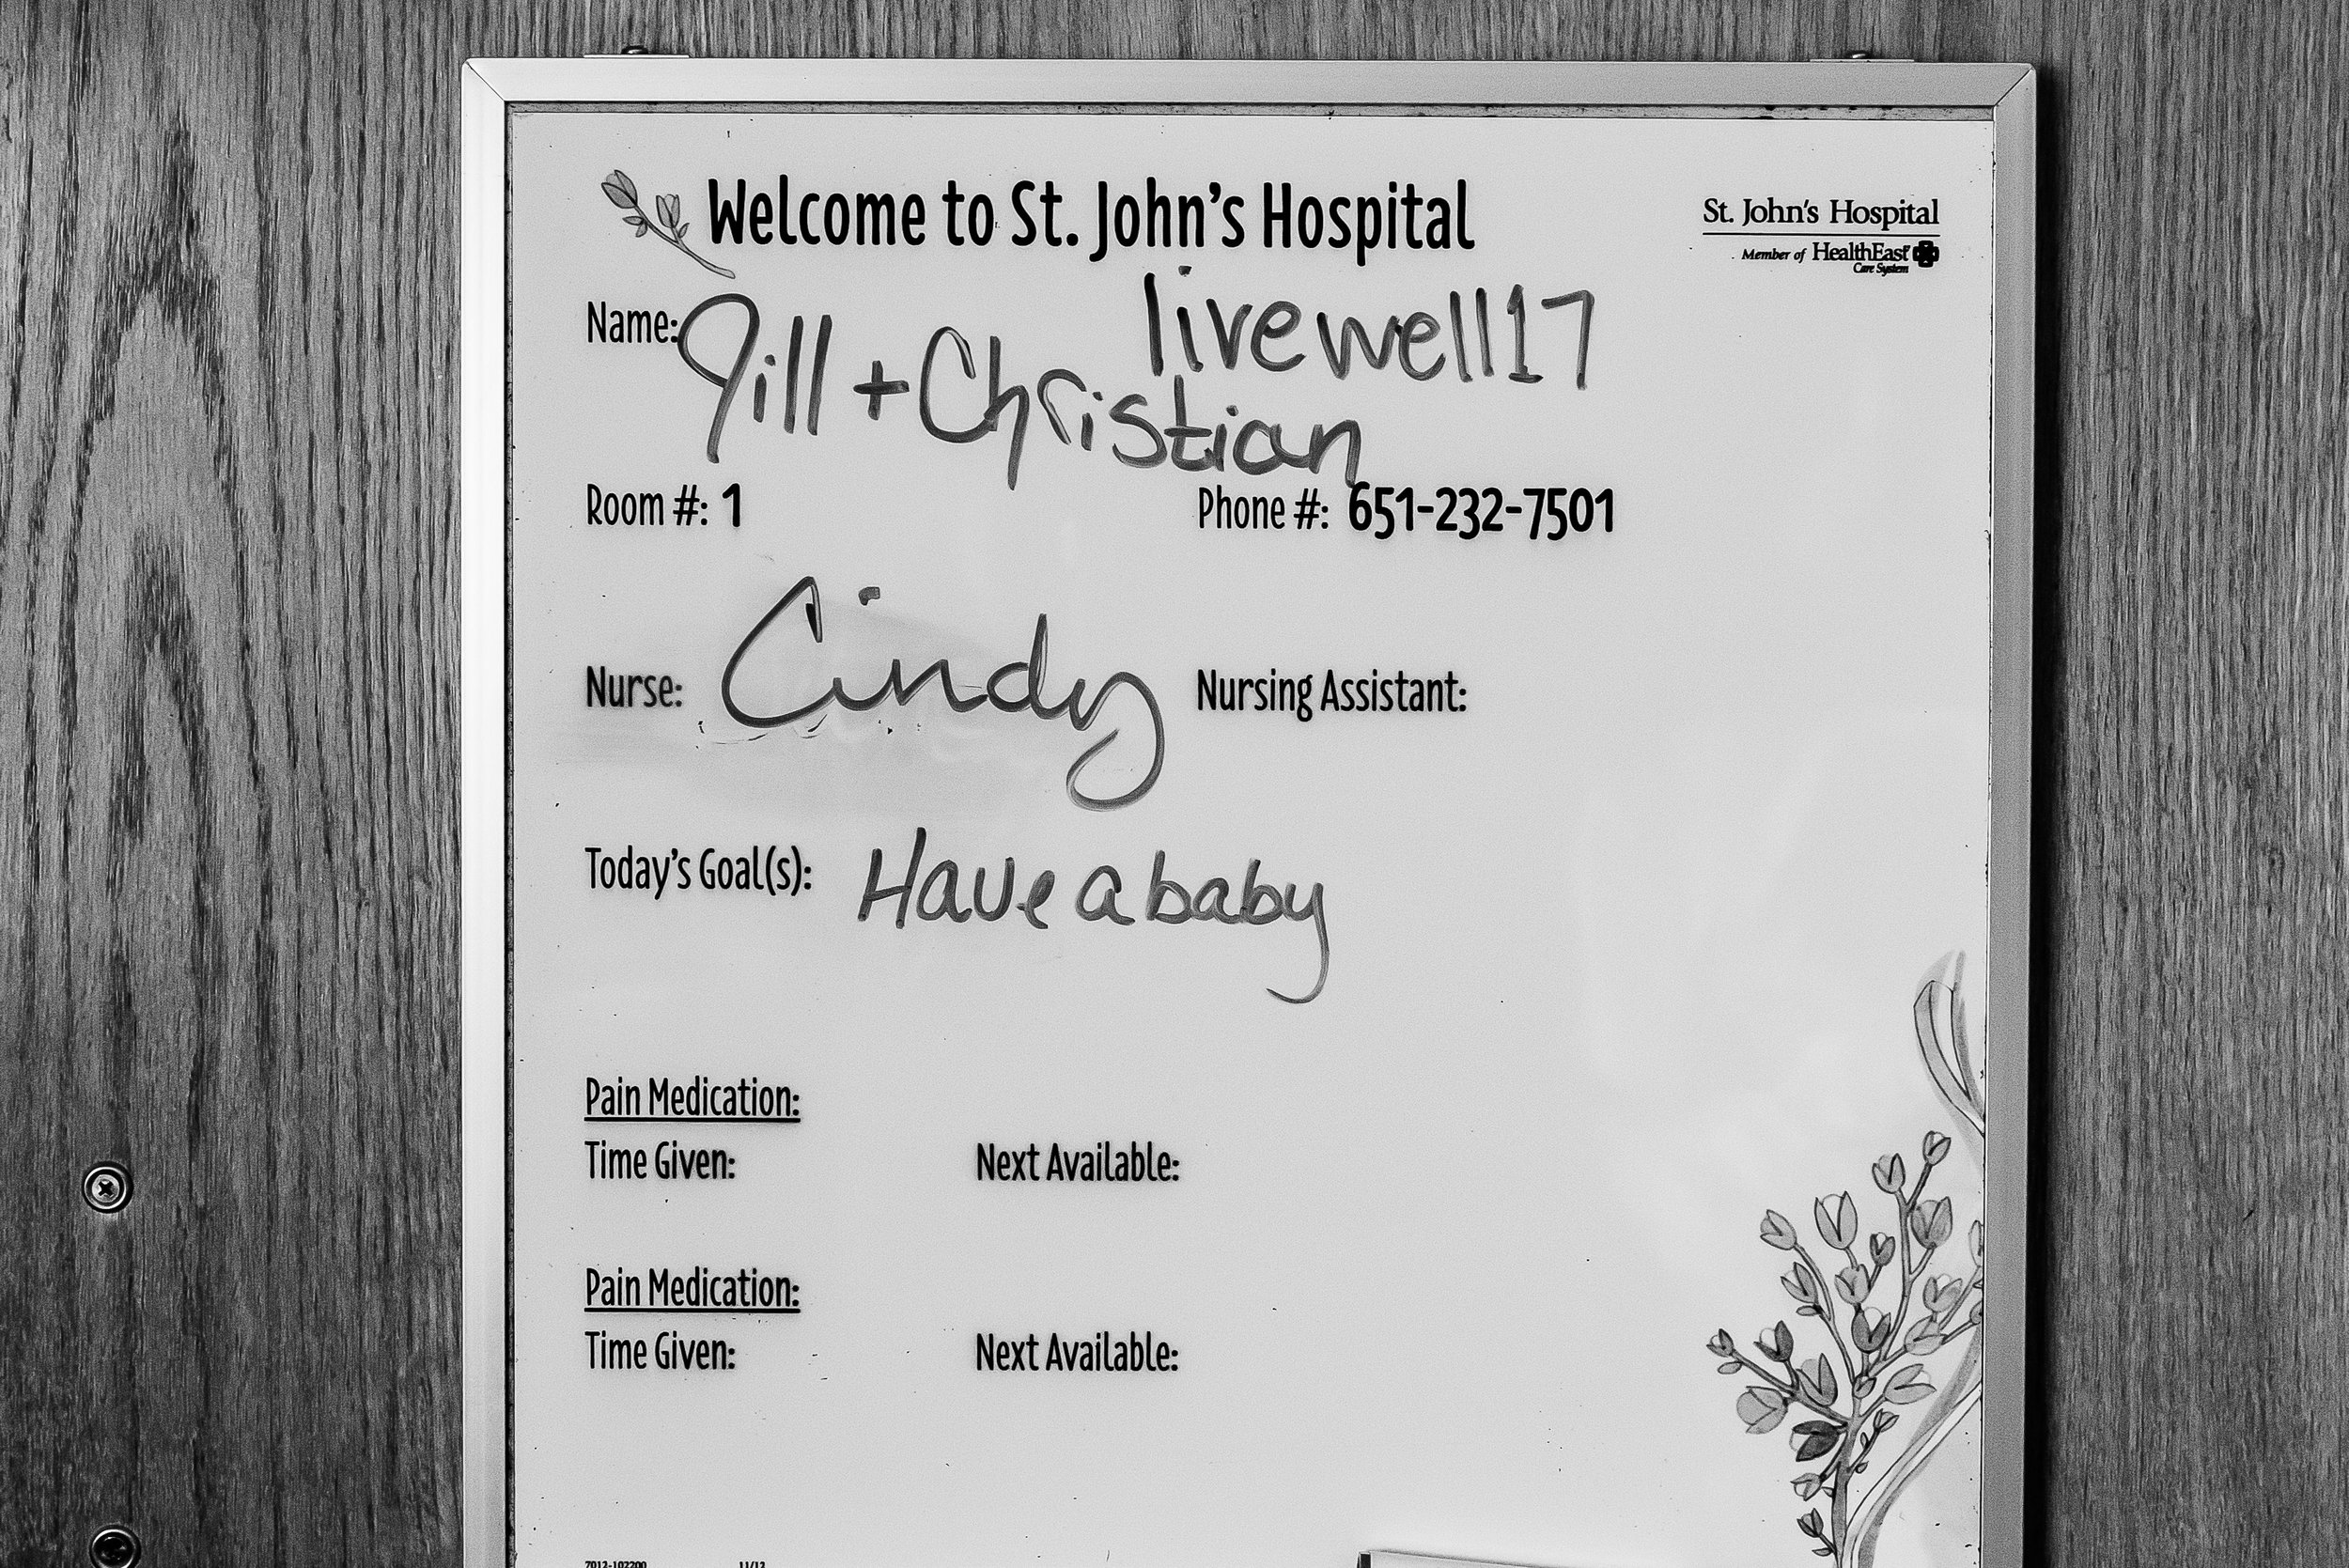 Welcome to St. John's Hospital
St. John's Hospital
Member of HealthEast
Care System
livewell17
Name: Jill + Christian
Room #: 1 Phone #: 651-232-7501
Nurse: Cindy Nursing Assistant:
Today's Goal(s): Have a baby
Pain Medication:
Time Given: Next Available:
Pain Medication:
Time Given: Next Available:
7012-102200 11/13